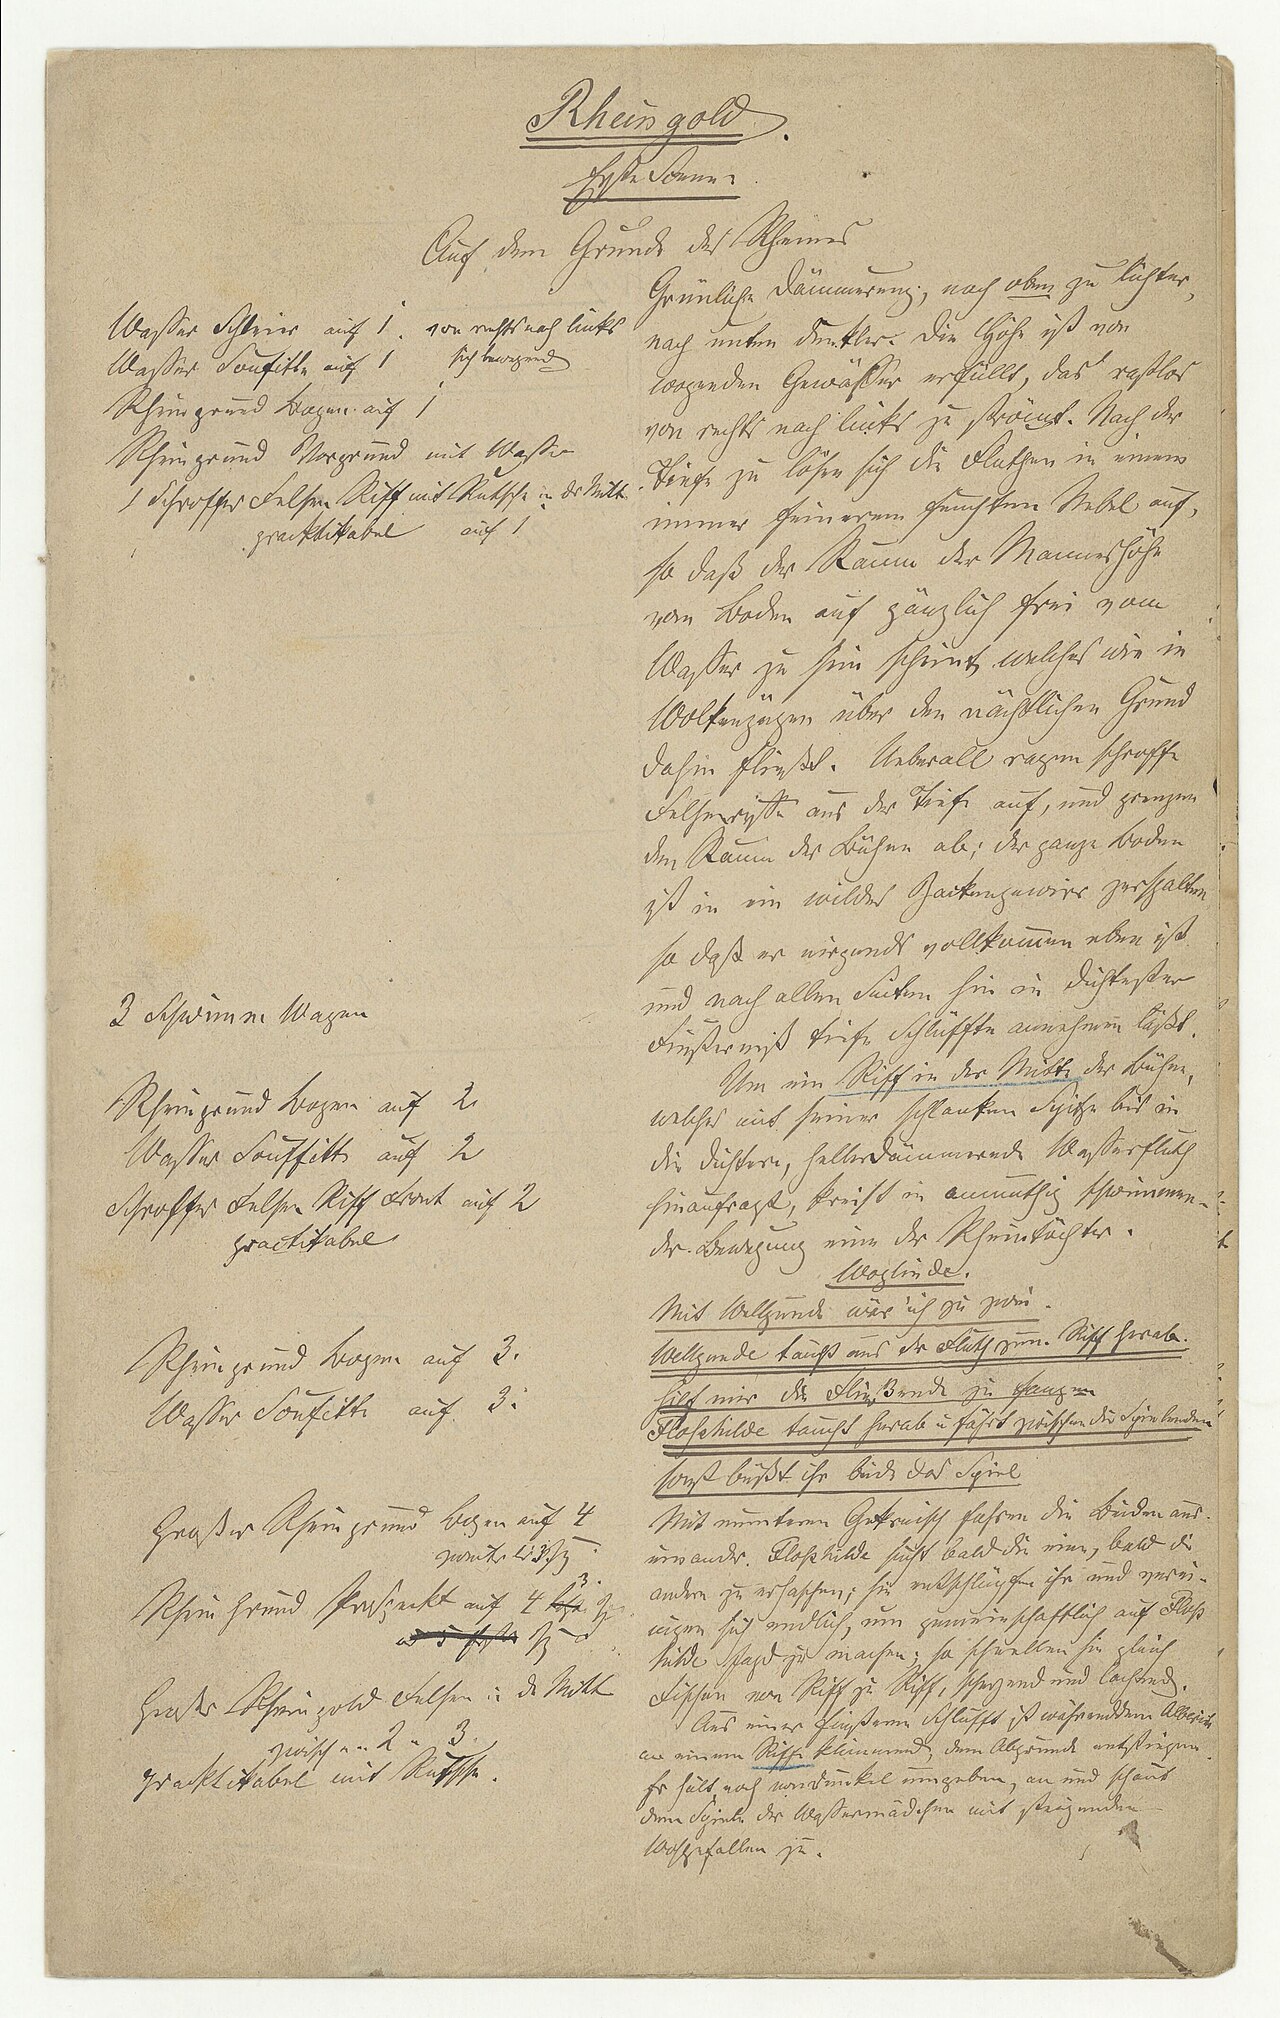 Rheingold.
Erste Scene.
Auf dem Grunde des Rheines
Wasser Schleier auf 1. von rechts nach links
sich bewegend
Wasser Soufitte auf 1
Rheingrund Bogen auf 1
Rheingrund Vorgrund mit Wasser
1 Schroffer Felsen Riff mit Rutsche in der Mitte
pracktikabel auf 1
3 Schwimm Wagen
Rheingrund Bogen auf 2.
Wasser Souffitte auf 2
Schroffer Felsen Riff Front auf 2
practikabel
Rheingrund Bogen auf 3.
Wasser Soufitte auf 3.
Großer Rheingrund Bogen auf 4
Rhein Grund Prospeckt auf 4
Großer Rheingold Felsen in de Mitte
zwischen 2 u 3.
pracktikabel mit Rutsche.
Grünliche Dämmerung, nach oben zu lichter,
nach unten dunkler. Die Höhe ist von
wogenden Gewässer erfüllt, das rastlos
von rechts nach links zu strömt. Nach der
Tiefe zu lösen sich die Fluthen in einem
immer feineren feuchten Nebel auf,
so daß der Raum der Manneshöhe
vom Boden auf gänzlich frei vom
Wasser zu sein scheint, welches wie in
Wolkenzügen über den nächtlichen Grund
dahin fließt. Ueberall ragen schroffe
Felsenriffe aus der Tiefe auf, und grenzen
den Raum der Bühne ab; der ganze Boden
ist in ein wildes Zackengewirr zerspalten
so daß er nirgends vollkommen eben ist
und nach allen Seiten hin in dichtester
Finsterniß tiefe Schlüffte annehmen läßt.
Um ein Riff in der Mitte der Bühne,
welches mit seiner schlanken Spitze bis in
die dichtere, heller dämmernde Wasserfluth
hinaufragt, kreist in anmuthig schwimmen-
der Bewegung eine der Rheintöchter.
Woglinde.
Mit Wellgunde wär' ich zu zwei.
Wellgunde taucht aus der Fluth zum Riff herab.
hilf mir die Fließende zu fangen
Floßhilde taucht herab u fährt zwischen die Spielenden
sonst büßt ihr beide das Spiel
Mit munterem Gekreisch fahren die Beiden aus-
einander. Floßhilde sucht bald die eine, bald die
andere zu erhaschen; sie entschlüpfen ihr und verei-
nigen sich endlich, um gemeinschaftlich auf Floß
hilde Jagd zu machen; so schnellen sie gleich
Fischen von Riff zu Riff, scherzend und lachend.
Aus einer finstern Schlufft ist währenddem Alberich
an einem Riffe klimmend, dem Abgrunde entstiegen.
Er hält noch vom Dunkel umgeben, an und schaut
dem Spiele der Wassermädchen mit steigendem
Wohlgefallen zu.